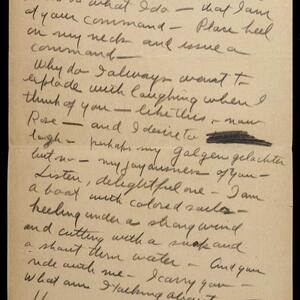 what I do — that I am
of your command — Place heel
on my neck and issue a
command —
Why do I always want to
explode with laughing when I
think of you — like this — now
Rose — and I desire to
laugh — perhaps my Galgengelachter
but no — my joyousness of you —
Listen, delightful one — I am
a boat with colored sails —
heeling under a strong wind
and cutting with a and
a shout thru water — And you
ride with me — I carry you —
What am I talking about